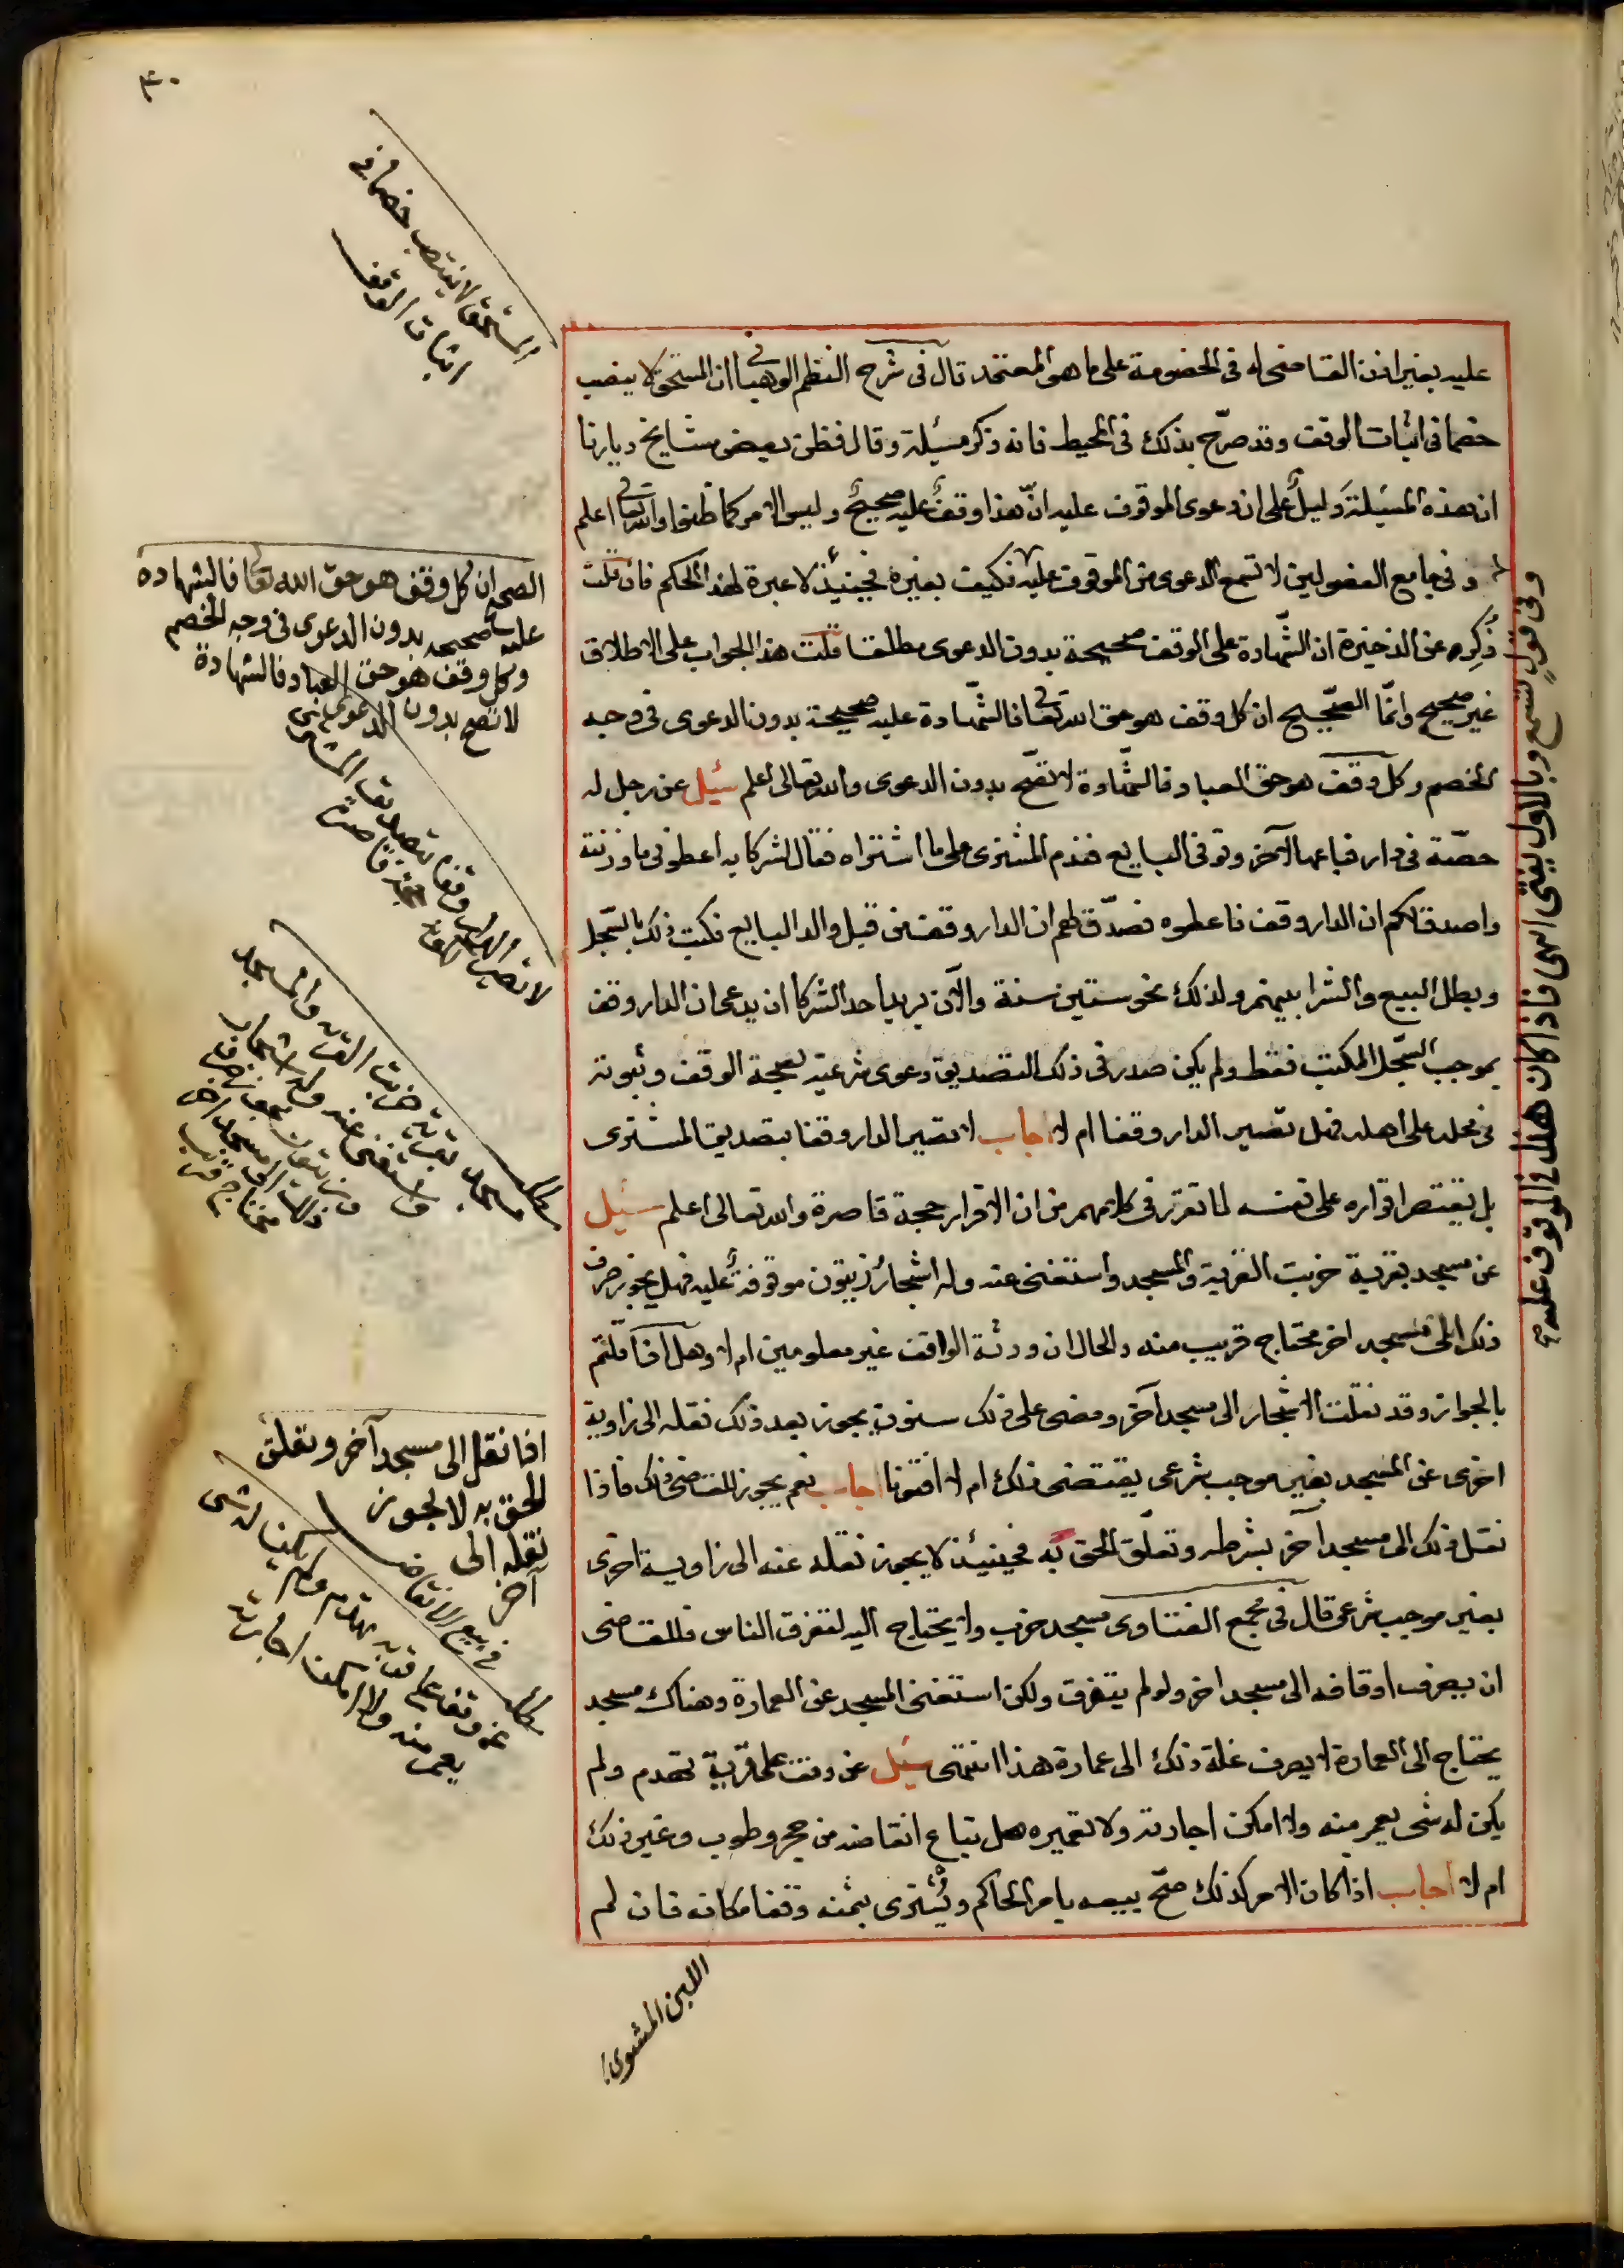 ٤٠
المستحق لا ينتصب خصما في
اثبات الوقف
عليه بغير اذن القاضى له فى الخصومة على ما هو المعتمد قال فى شرح النظم الوهبانى ان المستحق لا ينصب
خصما فى اثبات الوقف وقد صرّح بذلك فى المحيط فانه ذكر مسئلة وقال فظن بعض مشايخ ديارنا
ان هذه المسئلة دليلٌ على ان دعوى الموقوف عليه انّ هذا وقفٌ عليه صحيحٌ وليس الامر كما ظنوا والله تعالى اعلم
وفى جامع الفصولين لا تسمع الدعوى من الموقوف عليه فكيف بغيره فحينئذ لا عبرة لهذا الحكم فان قلت
ذُكِر عن الذخيرة ان الشّهادة على الوقف صحيحة بدون الدعوى مطلقا قلت هذا الجواب على الاطلاق
غير صحيح وانّما الصّحيح ان كل وقف هو حق الله تعالى فالشّهادة عليه صحيحة بدون الدعوى فى وجه
الخصم وكل وقف هو حق العباد فالشّهادة لا تصّح بدون الدعوى والله تعالى اعلم سئيل عن رجل له
حصّة فى دار فباعها لآخر وتوفى البايع فندم المشترى على ما اشتراه فقال لشركايه اعطونى ما وزنته
واصدقلكم ان الدار وقف فاعطوه فصدّق لهم ان الدار وقف من قبل والد البايع فكتب ذلك بالسّجل
وبطل البيع والشرا بينهم ولذلك نحو ستين سنة والآن يريد احد الشركا ان يدعى ان الدار وقف
بموجب السّجل المكتب فقط ولم يكن صدر فى ذلك التصديق دعوى شرعيّة لصحة الوقف وثبوته
فى محله على اهله فهل تصير الدار وقفا ام لا اجاب لا تصير الدار وقفا بتصديق المشترى
بل يقتصر اقراره على نفسه لما تقرر فى كلامهم من ان الاقرار حجة قاصرة والله تعالى اعلم سئيل
عن مسجد بقرية خربت القرية والمسجد واستغنى عنه وله اشجار زيتون موقوفة عليه فهل يجوز صرف
ذلك الى مسجد اخر محتاج قريب منه والحال ان ورثة الواقف غير معلومين ام لا وهل اذا قلتم
بالجواز وقد نقلت الاشجار الى مسجد آخر ومضى على ذلك سنون يجوز بعد ذلك نقله الى زاوية
اخرى عن المسجد بغير موجب شرعى يقتضى ذلك ام لا افتونا اجاب نعم يجوز للقاضى ذلك فاذا
نقل ذلك الى مسجد آخر بشرطه وتعلّق الحق به فحينئذ لا يجوز نقله عنه الى زاوية اخرى
بغير موجب شرعى قال فى مجمع الفتاوى مسجد خرب ولا يحتاج اليه لتفرق الناس فللقاضى
ان يصرف اوقافه الى مسجد اخر ولو لم يتفرق ولكن استغنى المسجد عن العمارة وهناك مسجد
يحتاج الى العمارة لا يصرف غلة ذلك الى عمارة هذا انتهى سئيل عن وقف على قرية تهدم ولم
يكن له شى يعمر منه ولا امكن اجارته ولا تعميره هل تباع انقاضه من حجر وطوب وغير ذلك
ام لا اجاب اذا كان الامر كذلك صحّ بيعه بامر الحاكم ويُشترى بثمنه وقفا مكانه فان لم
وفى قولٍ تسمع وبالاول يفتى انتهى فاذا كان هذا فى الموقوف عليه
الصحيح ان كل وقف هو حق الله تعا فالشهادة
عليه صحيحه بدون الدعوى فى وجه الخصم
وكل وقف هو حق العباد فالشهادة
لا تصح بدون الدعوى
لا تصير الدار وقفا بتصديق المشترى
مسجد بقرية خربت القرية والمسجد
واستغنى عنه وله اشجار
اذا نقل الى مسجد آخر وتعلق
الحق به لا يجوز
نقله الى
آخر
فى بيع الانقاض
عن وقف على قرية تهدم ولم يكن له شى
يعمر منه ولا امكن اجارته
اللبن المشوى